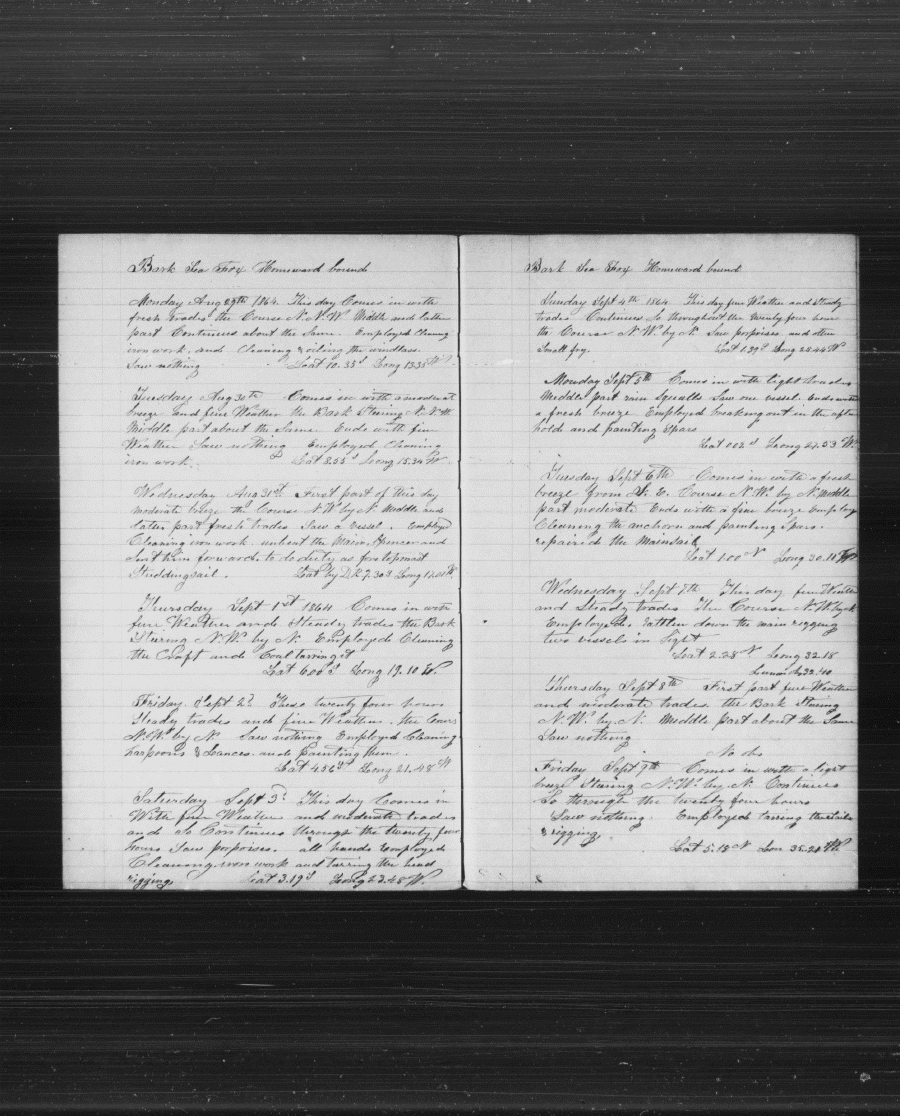 Bark Sea Fox Homeward bound
Monday Aug 29th 1864. This day Comes in with
fresh trades the Course N.N.W Middle and latter
part Continues about the Same. Employed Cleaning
iron work. and Cleaning & oiling the windlass.
Saw nothing Lat 10.35 S Long 13.35 W
Tuesday Aug 30th Comes in with a moderate
breeze and fine Weather the Bark Stearing N.N.W.
Middle part about the Same Ends with fine
Weather Saw nothing Employed Cleaning
iron work. Lat 8.55 S Long 15.34 W
Wednesday Aug 31st. First part of this day
moderate breeze the Course N.W by N. Middle and
latter part fresh trades Saw a vessel. Employd
Cleaning iron work. unbent the Main Spencer and
Sent him forward. to do duty as foretopmast
Studdingsail. Lat by D.R 7.30 S Long 17.01 W.
Thursday Sept 1st 1864 Comes in with
fine Weather and Steady trades the Bark
Stearing N.W. by N. Employed Cleaning
the Craft and Coaltarring it
Lat 6.00 S Long 19.10 W.
Friday Sept 2d These twenty four hours
Steady trades and fine Weather. the Cours
N.W. by N. Saw nothing Employed Cleaning
harpoons & Lances. and painting them.
Lat 4.56 S Long 21.48 W
Saturday Sept 3d This day Comes in
With fine Weather and moderate trades
and So Continues through the twenty four
hours Saw porpoises. all hands Employed
Cleaning iron work and tarring the head
rigging Lat 3.19 S Long 23.48 W.
Bark Sea Fox Homeward bound
Sunday Sept 4th 1864 This day fine Weather and Steady
trades Continues So throughout the twenty four hours
the Course N.W. by N. Saw porpoises. and other
Small fry. Lat 1.39 S Long 25.44 W
Monday Sept 5th Comes in with light trades
Middle part rain Squalls Saw one vessel. Ends with
a fresh breeze Employed breaking out in the after
hold and painting Spars
Lat 00 S Long 27.53 W.
Tuesday Sept 6th Comes in with a fresh
breeze from S. E. Course N.W. by N. Middle
part moderate Ends with a fine breeze Employ
Cleaning the anchors and painting Spars.
repaired the Mainsail
Lat 1.00 N Long 30.18 W
Wednesday Sept 7th This day fine Weather
and Steady trades The Course N.W. by N
Employed. rattlen down the main rigging
two vessels in Sight
Lat 2.28 N Long 32.18
Lunar 32.40
Thursday Sept 8th First part fine Weather
and moderate trades. the Bark Stearing
N.W. by N. Middle part about the Same
Saw nothing
No obs
Friday Sept 9th Comes in with a light
breeze Stearing N.W. by N. Continues
So through the twenty four hours
Saw nothing. Employed tarring
& rigging.
Lat 5.18 N Lon 35.20 W.